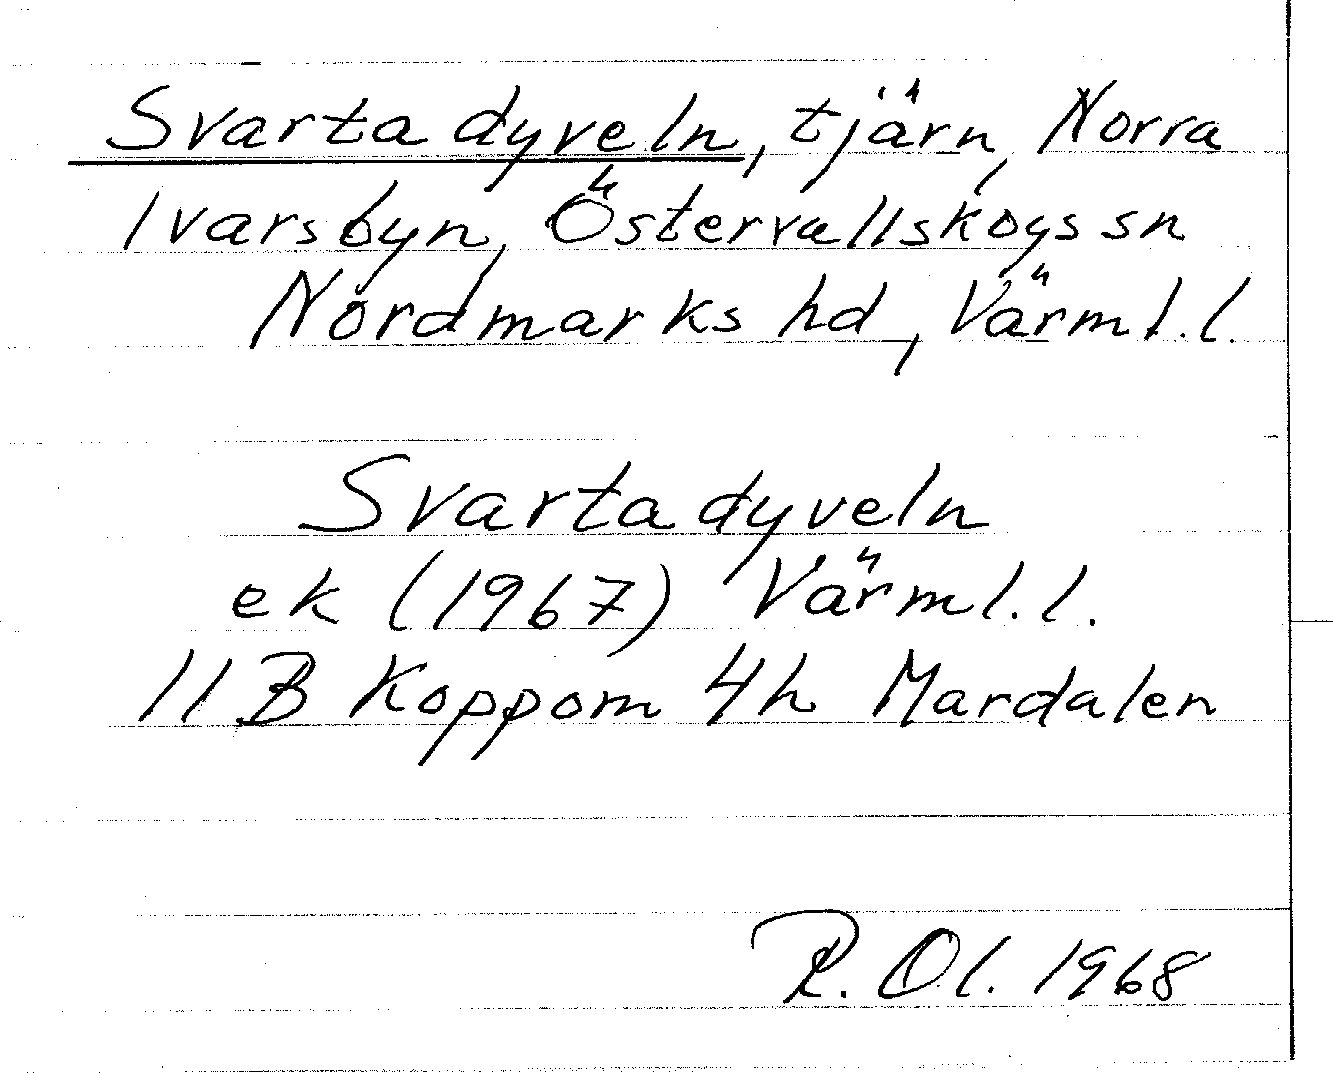 Svarta dyveln, tjärn, Norra
Ivarsbyn, Östervallskogs sn
Nordmarks hd, Värml. l.
Svarta dyveln
ek (1967) Värml. l.
11 B Koppom 4h Mardalen
R. Ol. 1968